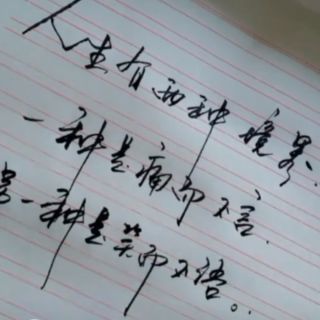 人生有两种境界.
一种是痛而不言.
另一种是笑而不语。